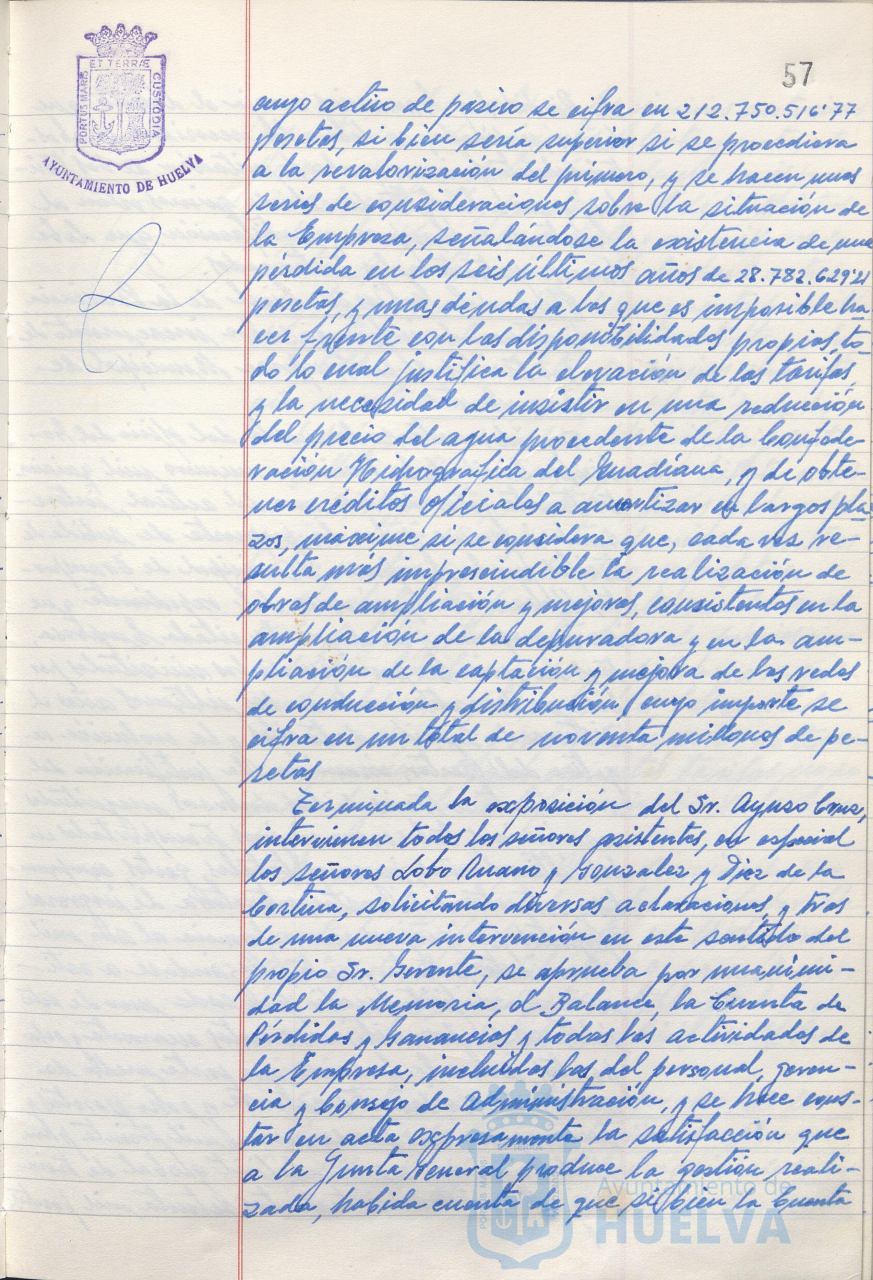 57
PORTUS MARIS ET TERRÆ CUSTODIA
AYUNTAMIENTO DE HUELVA
cuyo activo de pasivo se cifra en 212.750.516'77
pesetas, si bien sería superior si se procediera
a la revalorización del primero, y se hacen unas
series de consideraciones sobre la situación de
la Empresa, señalándose la existencia de una
pérdida en los seis últimos años de 28.782.629'21
pesetas, y unas deudas a las que es imposible ha
cer frente con las disponibilidades propias, to-
do lo cual justifica la elevación de las tarifas,
y la necesidad de insistir en una reducción
del precio del agua procedente de la Confede-
ración Hidrográfica del Guadiana, y de obte-
ner créditos oficiales a amortizar en largos pla-
zos, máxime si se considera que, cada vez re-
sulta más imprescindible la realización de
obras de ampliación y mejoras, consistentes en la
ampliación de la depuradora y en la am-
pliación de la captación y mejora de las redes
de conducción y distribución, cuyo importe se
cifra en un total de noventa millones de pe-
setas
Terminada la exposición del Sr. Ayuso Cruz,
intervienen todos los señores asistentes, en especial
los señores Lobo Ruano y González y Díez de la
Cortina, solicitando diversas aclaraciones, y tras
de una nueva intervención en este sentido del
propio Sr. Gerente, se aprueba por unanimi-
dad la Memoria, el Balance, la Cuenta de
Pérdidas y Ganancias y todas las actividades de
la Empresa, incluidas las del personal, geren-
cia y Consejo de Administración, y se hace cons-
tar en acta expresamente la satisfacción que
a la Junta General produce la gestión reali-
zada, habida cuenta de que si bien la Cuenta
Ayuntamiento de
HUELVA